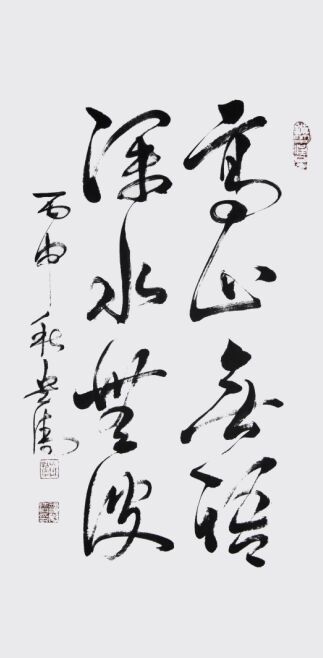 高山无语
深水無波
丙申秋